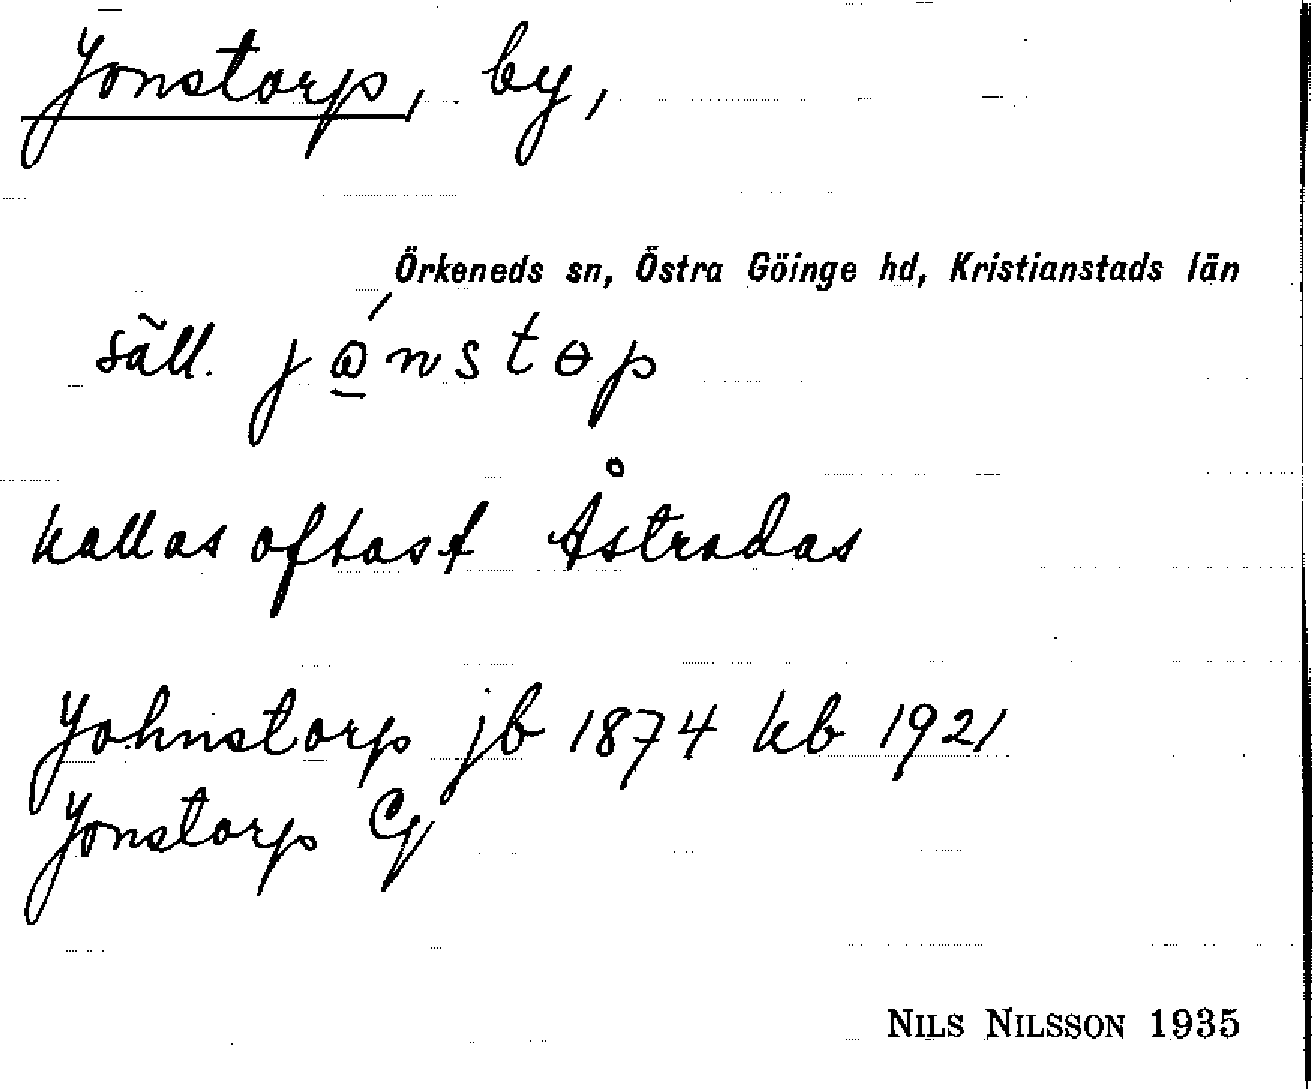 Jonstorp, by,
Örkeneds sn, Östra Göinge hd, Kristianstads län
säll. jώ̲nstɵp
kallas oftast Åstradas
Johnstorp jb 1874 kb 1921
Jonstorp Cg
NILS NILSSON 1935